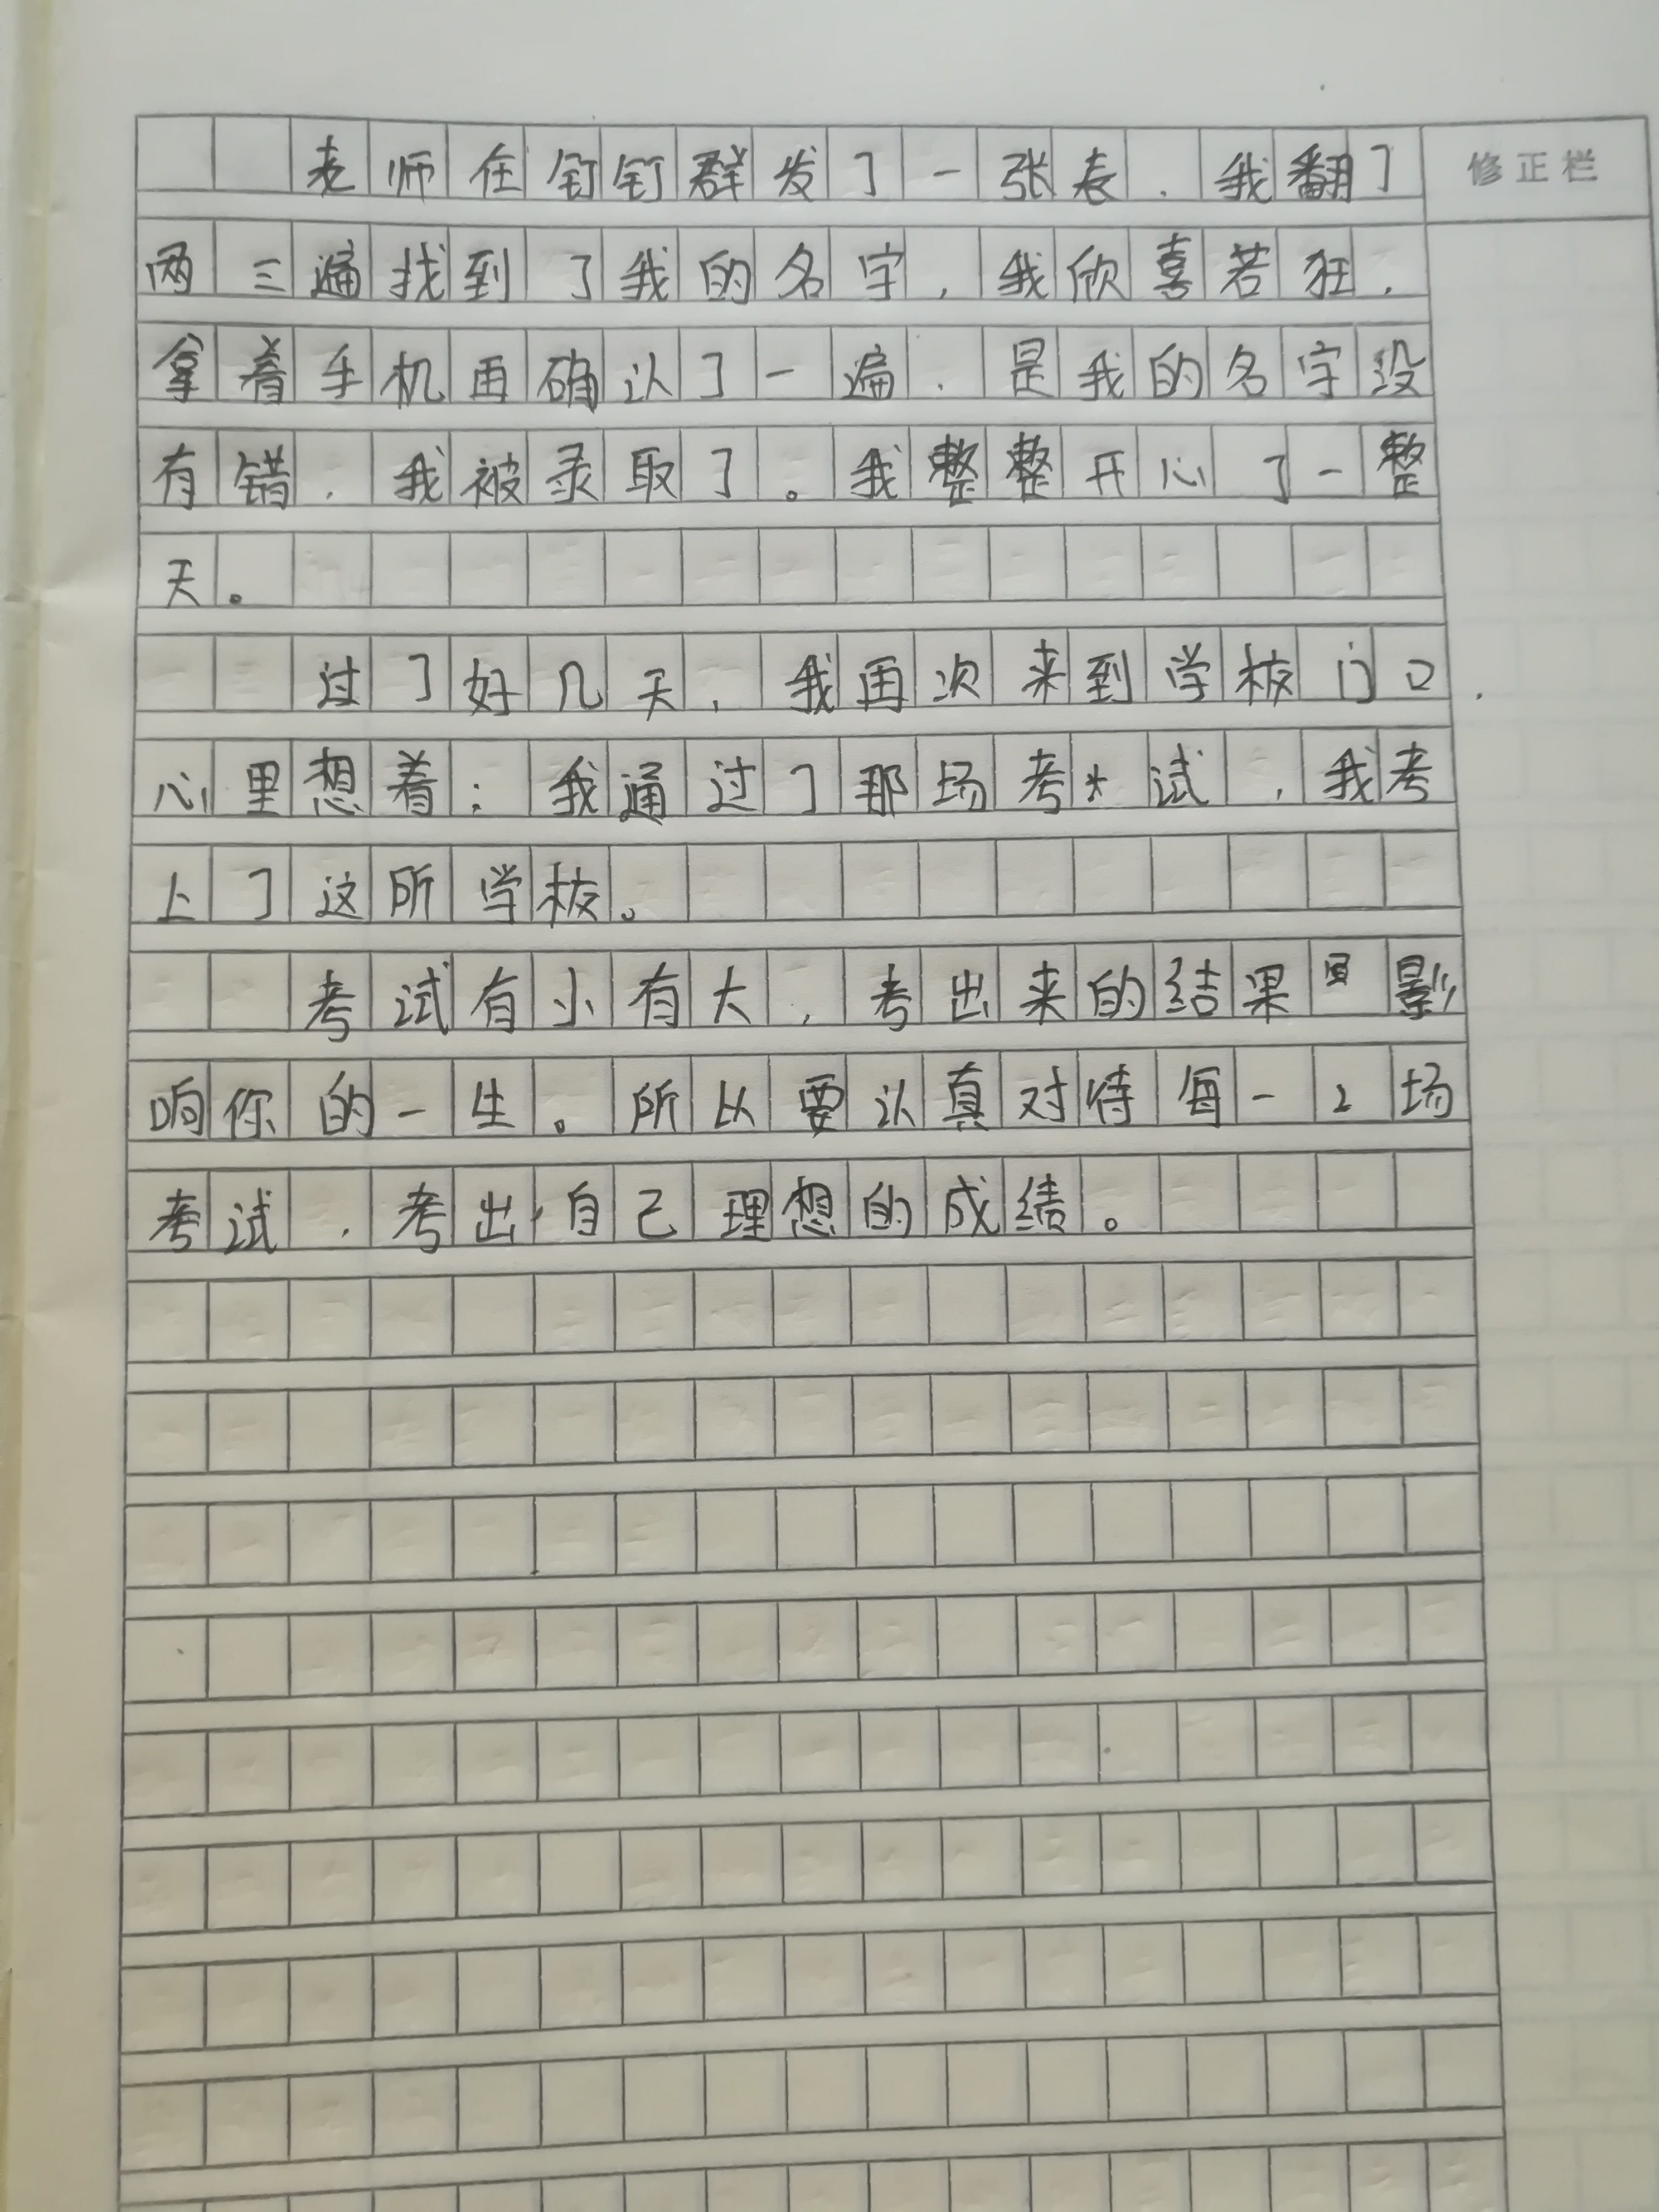 老师在钉钉群发了一张表，我翻了
修正栏
两三遍找到了我的名字，我欣喜若狂，
拿着手机再确认了一遍，是我的名字没
有错，我被录取了。我整整开心了一整
天。
过了好几天，我再次来到学校门口，
心里想着：我通过了那场考试，我考
上了这所学校。
考试有小有大，考出来的结果影
响你的一生。所以要认真对待每一场
考试，考出自己理想的成绩。